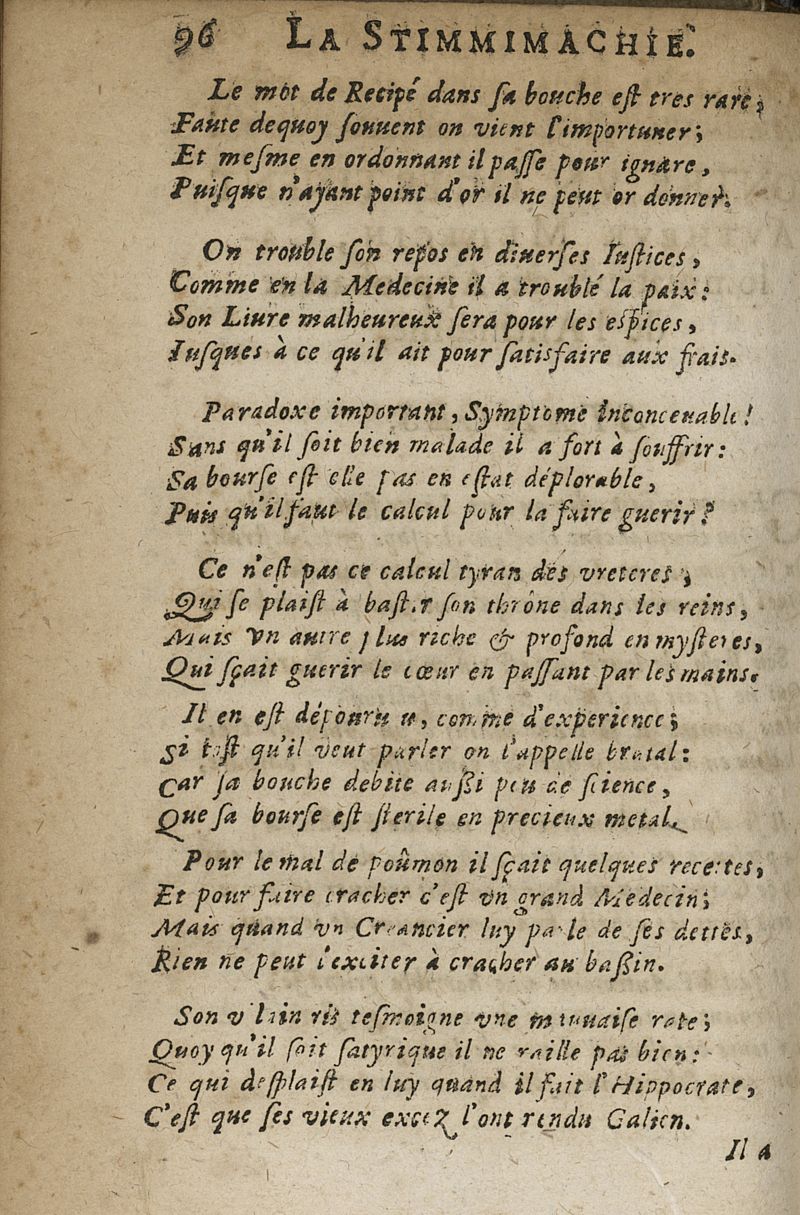 96 LA STIMMIMACHIE.
Le mot de Recipé dans ſa bouche eſt tres rare;
Faute dequoy ſouuent on vient l'importuner;
Et meſme en ordonnant il paſſe pour ignare,
Puiſque n'ayant point d'or il ne peut or donner.
On trouble ſon repos en diuerſes Iuſtices,
Comme en la Medecine il a troublé la paix:
Son Liure malheureux ſera pour les eſpices,
Iuſques à ce qu'il ait pour ſatisfaire aux frais.
Paradoxe important, Symptome inconceuable!
Sans qu'il ſoit bien malade il a fort à ſouffrir:
Sa bourſe eſt elle pas en eſtat déplorable,
Puis qu'il faut le calcul pour la faire guerir?
Ce n'eſt pas ce calcul tyran des vreteres;
Qui ſe plaiſt à baſtir ſon thrône dans les reins,
Mais vn autre plus riche & profond en myſteres,
Qui ſçait guerir le cœur en paſſant par les mains.
Il en eſt dépourueu, comme d'experience;
Si toſt qu'il veut parler on l'appelle brutal:
Car ſa bouche debite auſſi peu de ſcience,
Que ſa bourſe eſt ſterile en precieux metal.
Pour le mal de poûmon il ſçait quelques recettes,
Et pour faire cracher c'eſt vn grand Medecin;
Mais quand vn Creancier luy parle de ſes dettes,
Rien ne peut l'exciter à cracher au baſſin.
Son vilain ris teſmoigne vne mauuaiſe rate;
Quoy qu'il ſoit ſatyrique il ne raille pas bien:
Ce qui deſplaiſt en luy quand il fait l'Hippocrate,
C'eſt que ſes vieux excez l'ont rendu Galien.
Il a